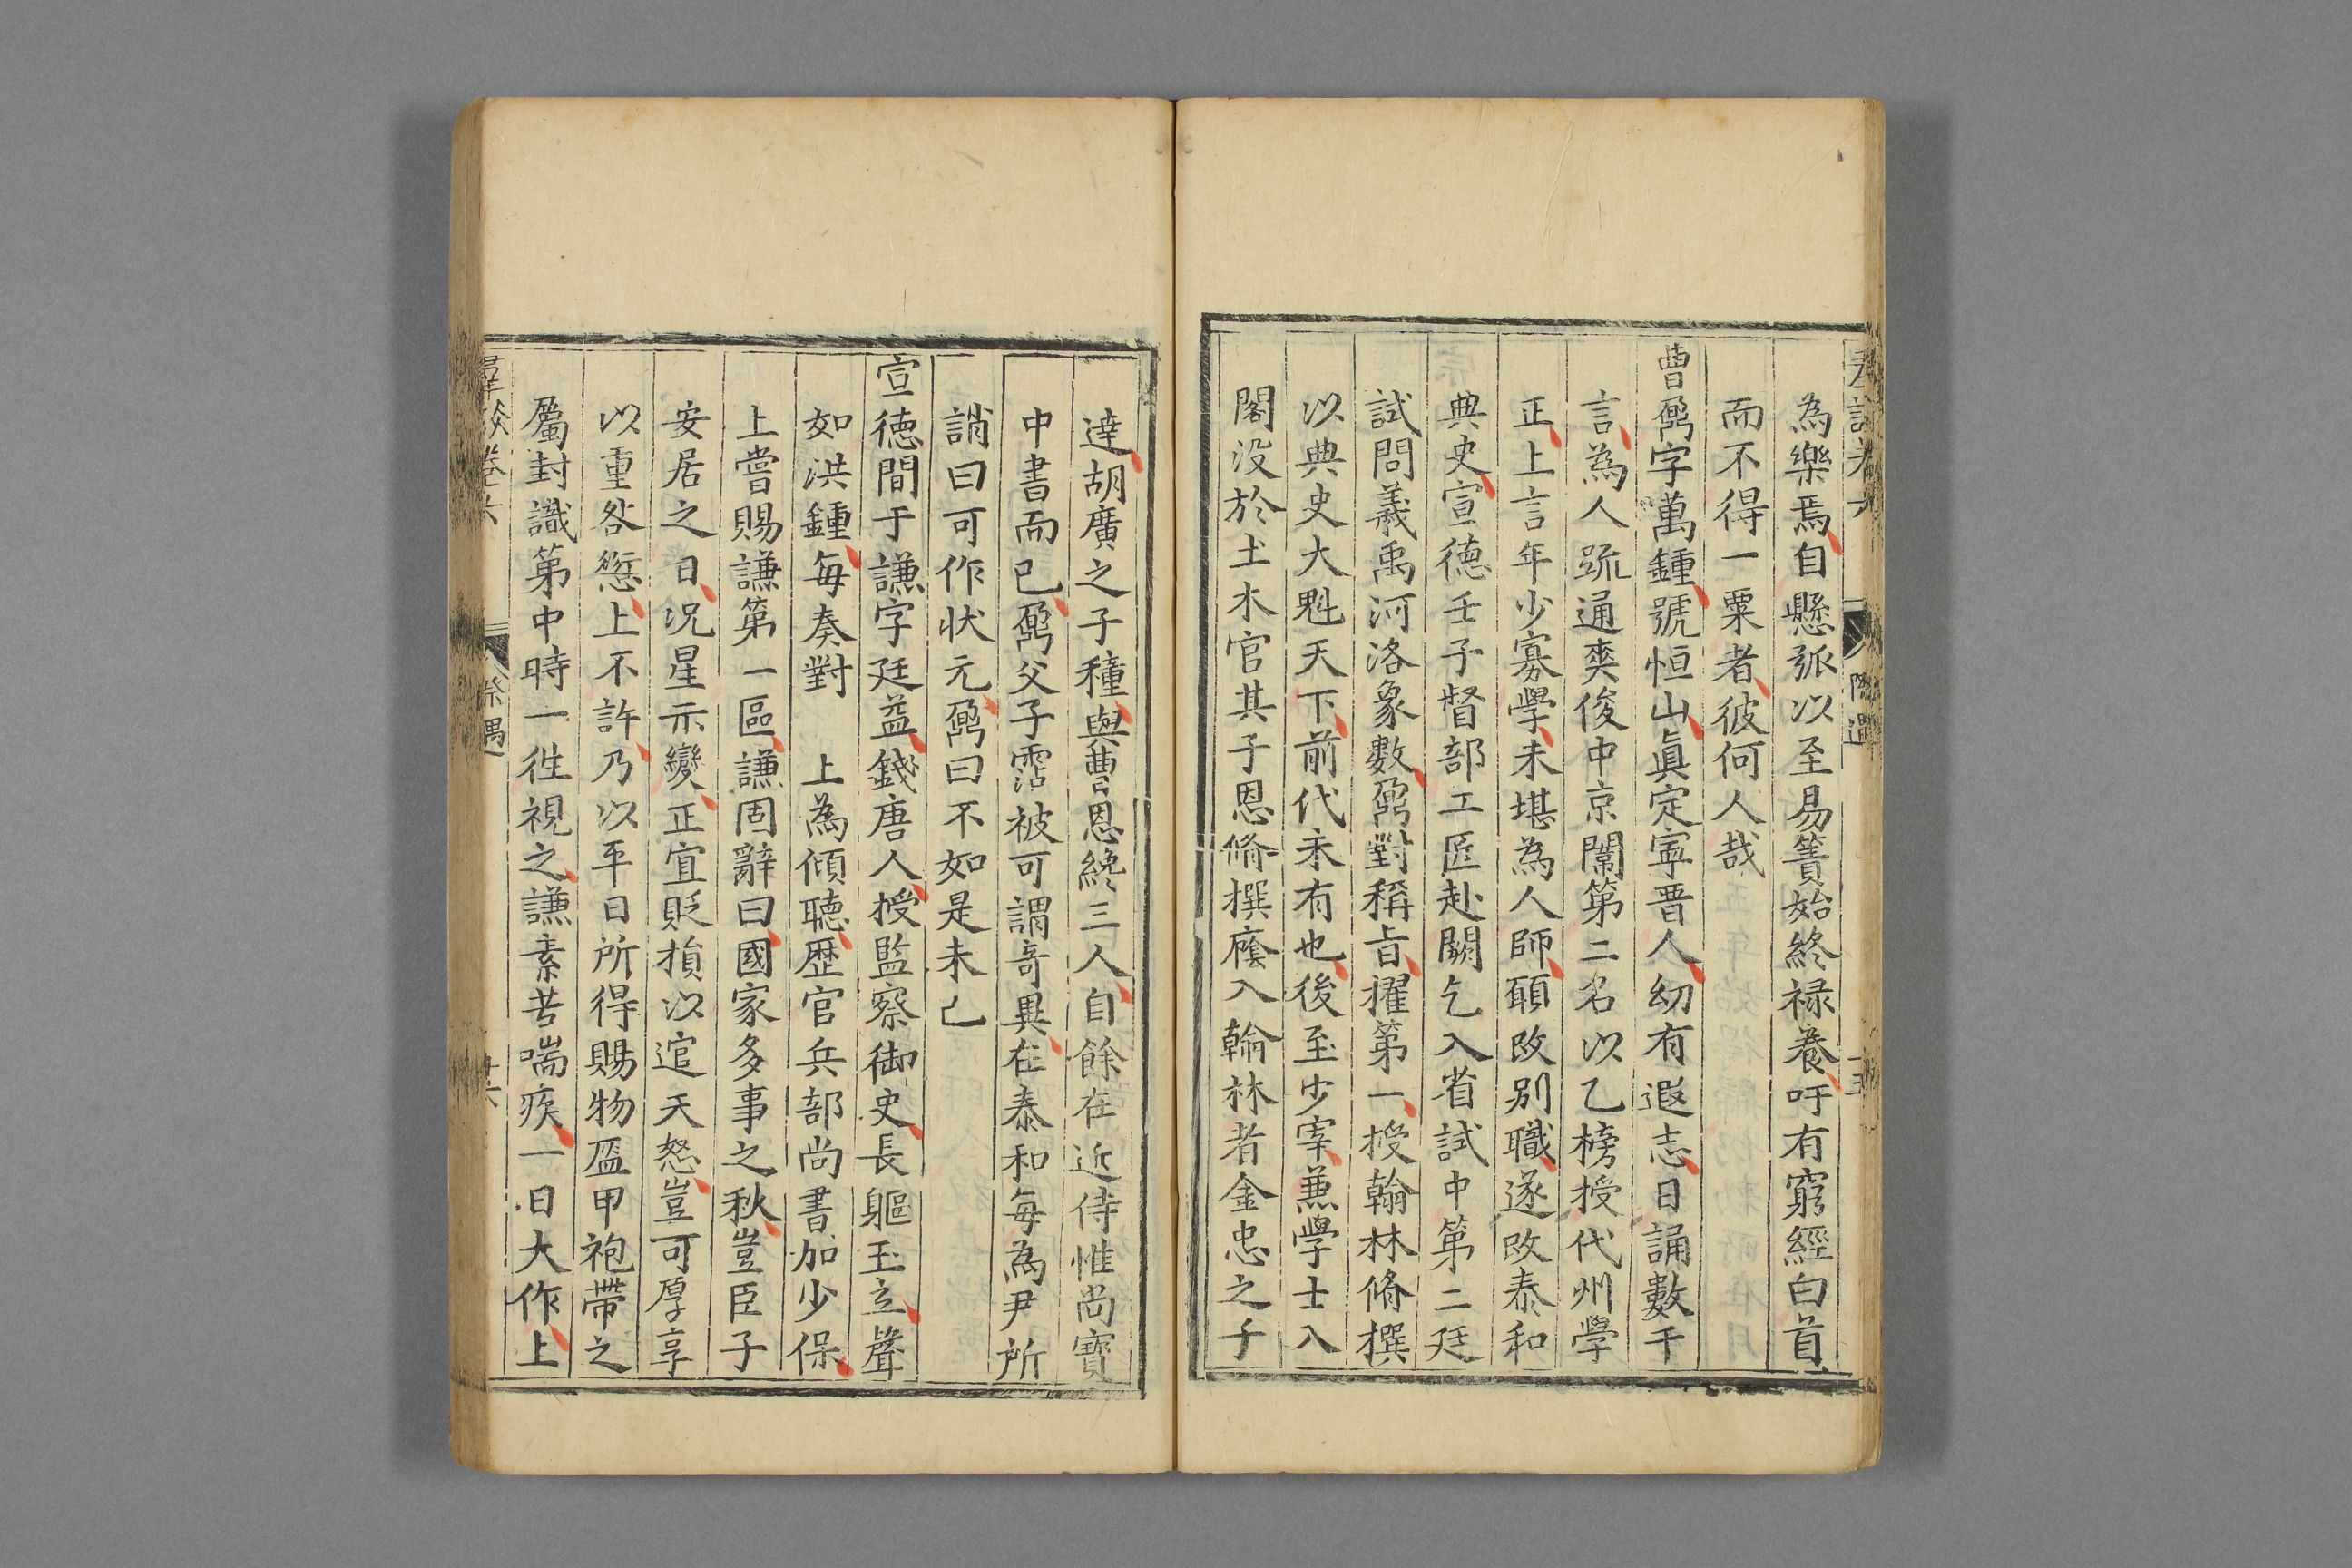 為樂焉自懸弧以至易簀始終禄養吁有窮經白首
而不得一粟者彼何人哉
曹鼐字萬鍾號恒山眞定寕晋人幼有遐志日誦數千
言為人䟽通爽俊中京闈第二名以乙榜授代州學
正上言年少寡學未堪為人師願改别職遂改泰和
典史宣德壬子督部工匠赴闕乞入省試中第二廷
試問羲禹河洛象數鼐對稱旨擢第一授翰林脩撰
以典史大魁天下前代未有也後至少宰兼學士入
閣没於土木官其子恩脩撰廕入翰林者金忠之子
達胡廣之子穜與曹恩纔三人自餘在近侍惟尚寶
中書而已鼐父子霑被可謂竒異在泰和每為尹所
誚曰可作状元鼐曰不如是未已
宣德間于謙字廷益錢唐人授監察御史長軀玉立聲
如洪鍾每奏對　上為傾聽歷官兵部尚書加少保
上嘗賜謙第一區謙固辭曰國家多事之秋豈臣子
安居之日况星示變正宜貶損以逭天怒豈可厚享
以重咎愆上不許乃以平日所得賜物盔甲袍帶之
屬封識第中時一徃視之謙素苦喘疾一日大作上
羣談卷六